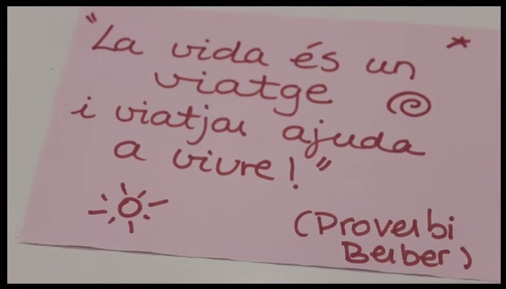 "La vida és un
viatge
i viatjar ajuda
a viure!"
(Proverbi
Berber)